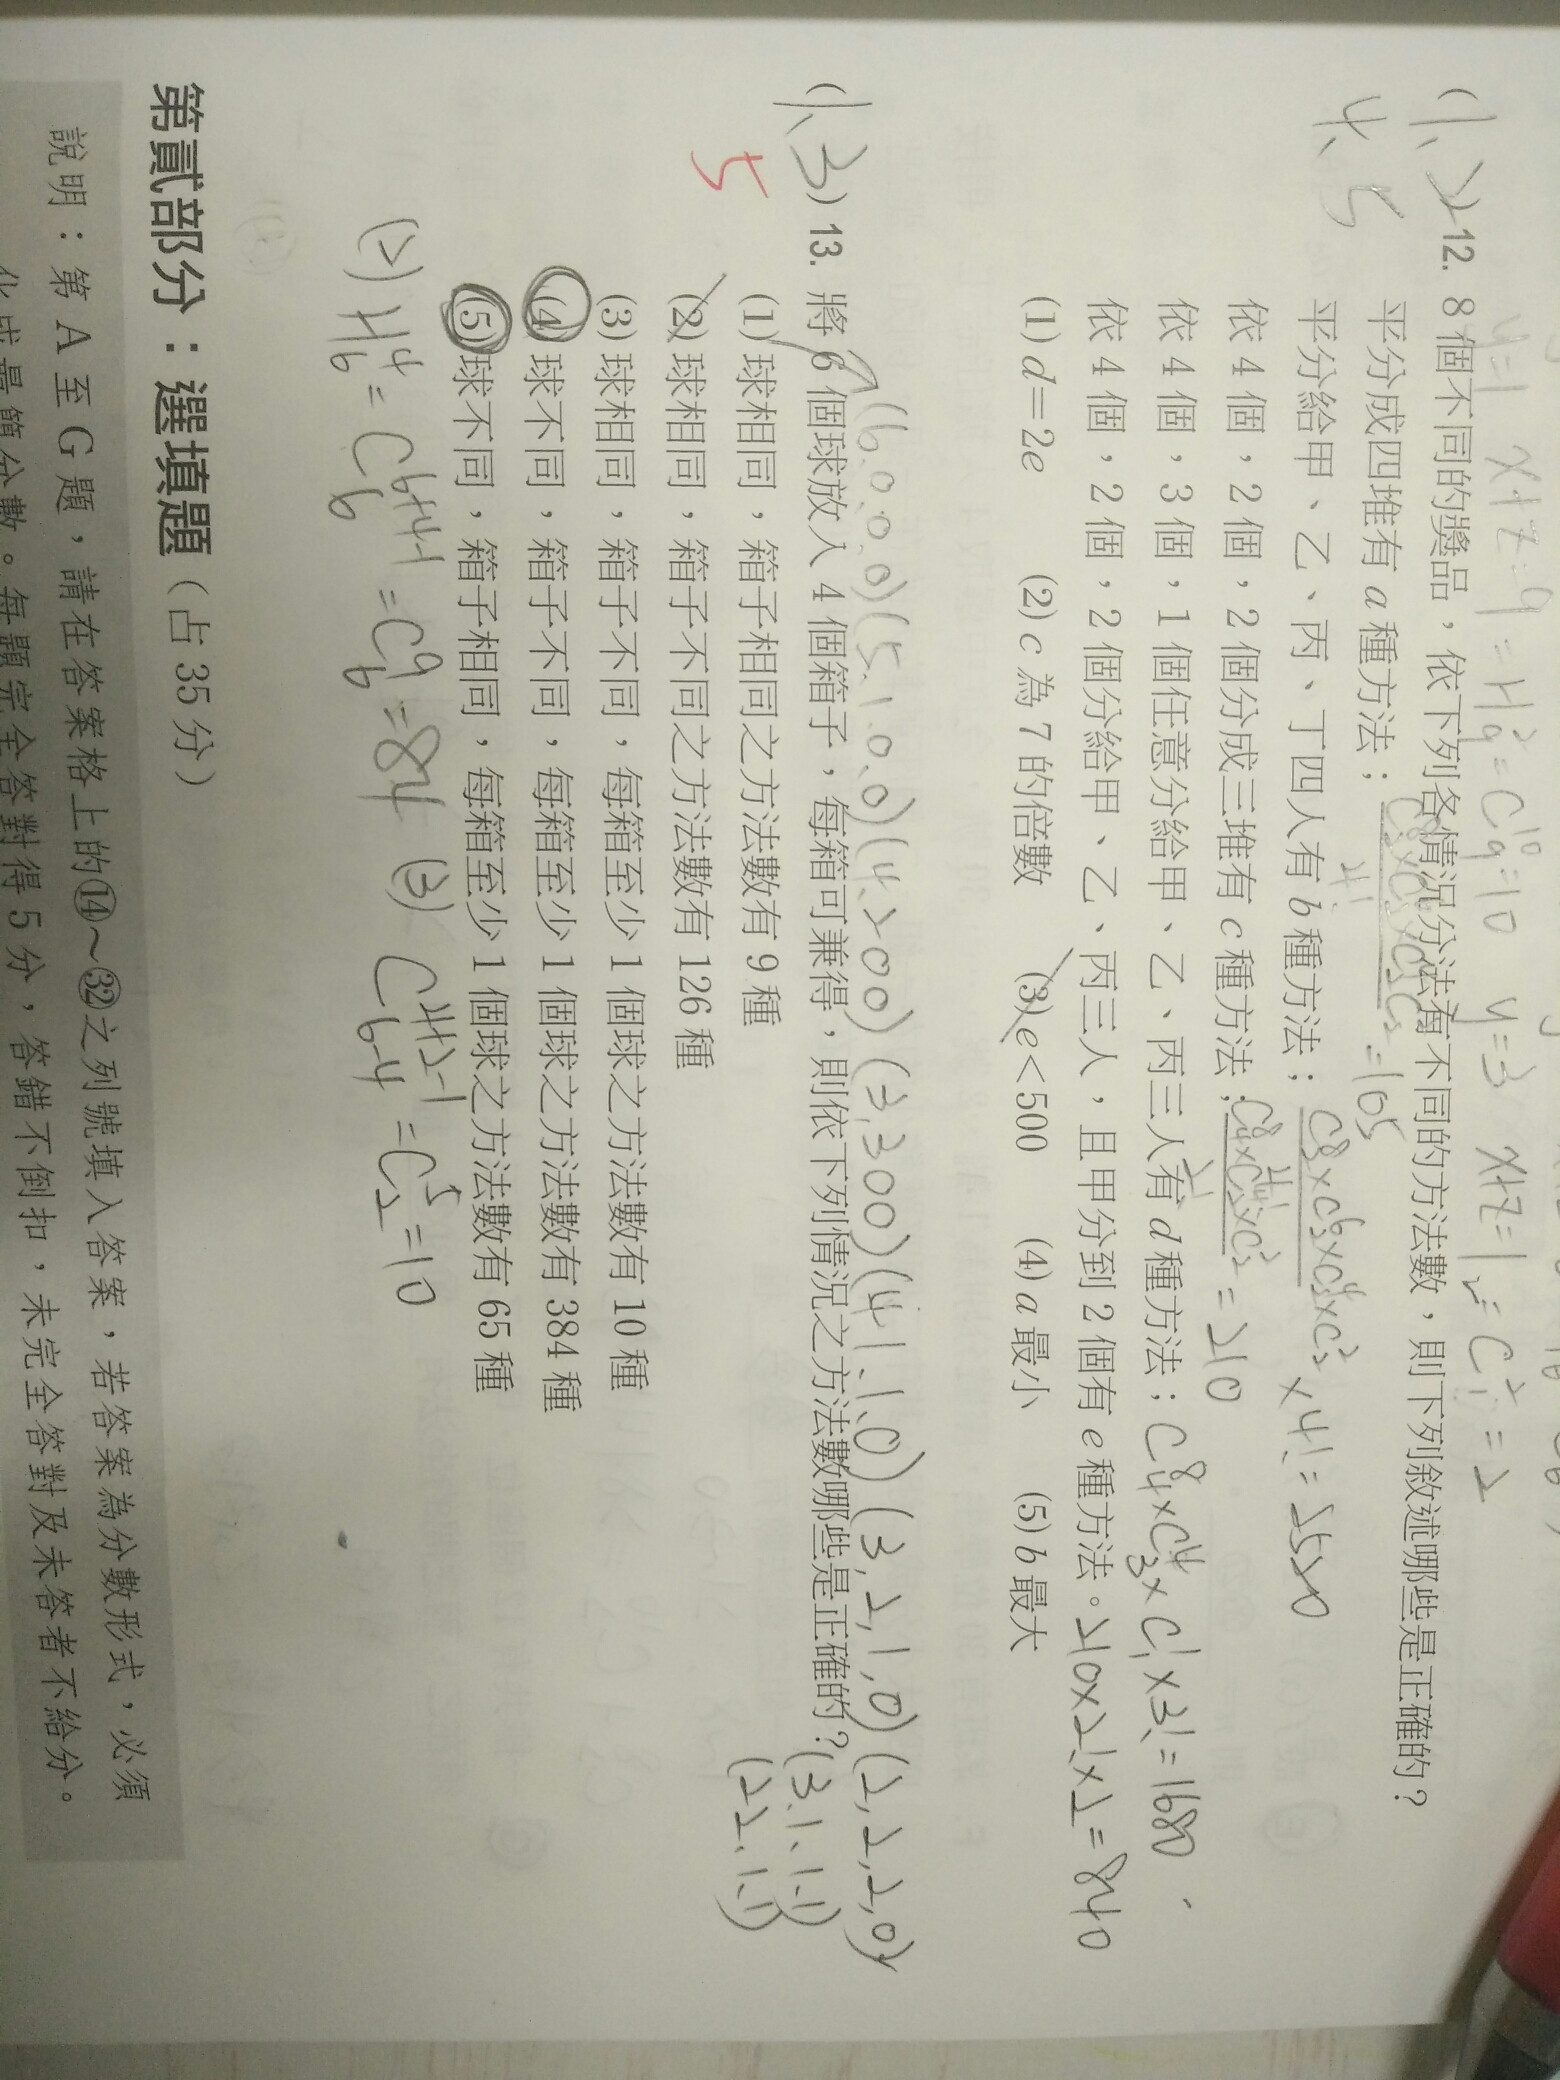 (1、2 4、5) 12. 8 個不同的獎品，依下列各情況分法有不同的方法數，則下列敘述哪些是正確的？
平分成四堆有 a 種方法； =105
平分給甲、乙、丙、丁四人有 b 種方法； ×4!=2520
依 4 個，2 個，2 個分成三堆有 c 種方法； =210
依 4 個，3 個，1 個任意分給甲、乙、丙三人有 d 種方法； C⁸₄×C⁴₃×C¹₁×3!=1680
依 4 個，2 個，2 個分給甲、乙、丙三人，且甲分到 2 個有 e 種方法。 210×2!×2=840
(1) d＝2e (2) c 為 7 的倍數 (3) e＜500 (4) a 最小 (5) b 最大
(6.0.0.0)(5.1.0.0)(4.200)(3,300)(4,1.1.0)(3,2,1,0)(2,2,2,0)
(1、3) 13. 將 6 個球放入 4 個箱子，每箱可兼得，則依下列情況之方法數哪些是正確的？ (3.1.1.1)
5
(2 2.1.1)
(1) 球相同，箱子相同之方法數有 9 種
(2) 球相同，箱子不同之方法數有 126 種
(3) 球相同，箱子不同，每箱至少 1 個球之方法數有 10 種
(4) 球不同，箱子不同，每箱至少 1 個球之方法數有 384 種
(5) 球不同，箱子相同，每箱至少 1 個球之方法數有 65 種
(2) H⁴₆=C⁶⁺⁴⁻¹₆=C⁹₆=84 (3) C⁴⁺²⁻¹₆₋₄=C⁵₂=10
第貳部分：選填題（占 35 分）
說明：第 A 至 G 題，請在答案格上的⑭～㉜之列號填入答案，若答案為分數形式，必須
化成最簡分數。每題完全答對得 5 分，答錯不倒扣，未完全答對及未答者不給分。